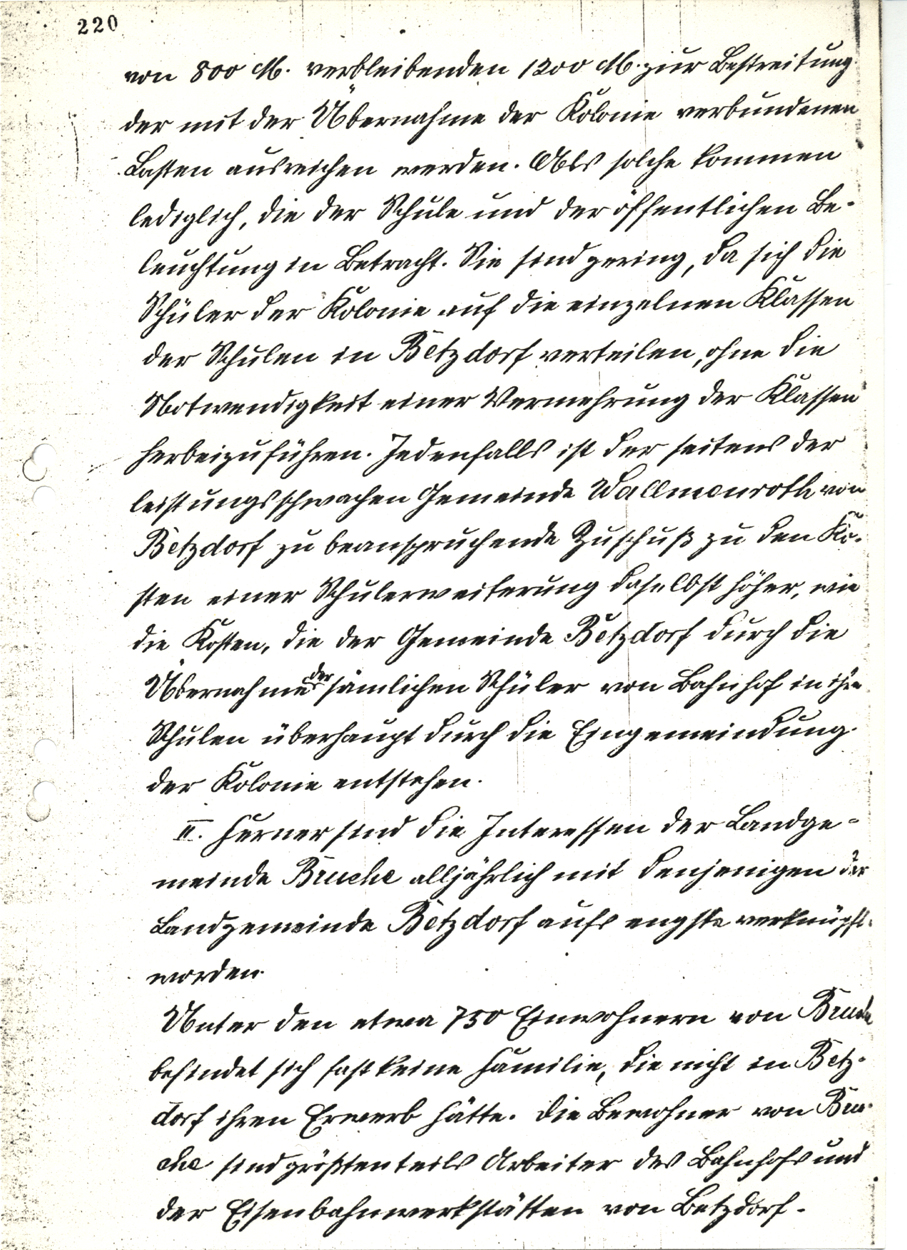 220
von 800 M. verbleibenden 1200 M. zur Bestreitung
der mit der Übernahme der Kolonie verbundenen
Lasten ausreichen werden. Als solche kommen
lediglich, die der Schule und der öffentlichen Be-
leuchtung in Betracht. Sie sind gering, da sich die
Schüler der Kolonie auf die einzelnen Klassen
der Schulen in Betzdorf verteilen, ohne die
Notwendigkeit einer Vermehrung der Klassen
herbeizuführen. Jedenfalls ist der seitens der
leistungsschwachen Gemeinde Wallmenroth von
Betzdorf zu beanspruchende Zuschuß zu den Ko-
sten einer Schulerweiterung daselbst höher, wie
die Kosten, die der Gemeinde Betzdorf durch die
Übernahme der sämlichen Schüler von Bahnhof in ihre
Schulen überhaupt durch die Eingemeindung
der Kolonie entstehen.
II. Ferner sind die Interessen der Landge-
meinde Bruche alljährlich mit denjenigen der
Landgemeinde Betzdorf aufs engste verknüpft
worden.
Unter den etwa 750 Einwohnern von Bruche
befindet sich fast keine Familie, die nicht in Betz-
dorf ihren Erwerb hätte. Die Bewohner von Bru-
che sind größtenteils Arbeiter des Bahnhofs und
der Eisenbahnwerkstätten von Betzdorf.